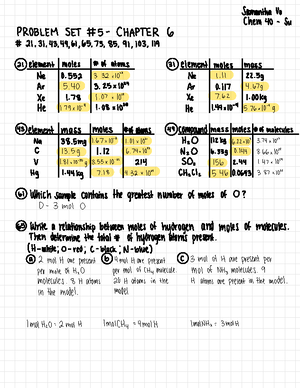 Samantha Vo
Chem 40 - Su
PROBLEM SET #5 - CHAPTER 6
# 21, 31, 43, 49, 61, 65, 73, 85, 91, 103, 119
21 element moles # of atoms
Ne 0.552
Ar 5.40
Xe 1.78
He
31 element moles mass
Ne 1.11 22.5g
Ar 0.117 4.67g
Xe 7.62 1.00kg
He
43 element mass moles # of atoms
Na 38.5mg
C 13.5g 1.12
V 214
Hg 1.44kg 7.18
49 compound mass moles # of molecules
H₂O 112kg
N₂O 6.33g 0.144
SO₂ 156 2.44
CH₂Cl₂ 5.46 0.0643
61 Which sample contains the greatest number of moles of O?
D - 3 mol O
65 Write a relationship between moles of hydrogen and moles of molecules.
Then determine the total # of hydrogen atoms present.
(H-white; O-red; C-black; N-blue)
a 2 mol H are present
per mole of H₂O
molecules. 8 H atoms
in the model.
b 4 mol H are present
per mol of CH₄ molecule.
20 H atoms in the
model
c 3 mol of H are present per
mol of NH₃ molecules. 9
H atoms are present in the model.
1 mol H₂O = 2 mol H
1 mol CH₄ = 4 mol H
1 mol NH₃ = 3 mol H